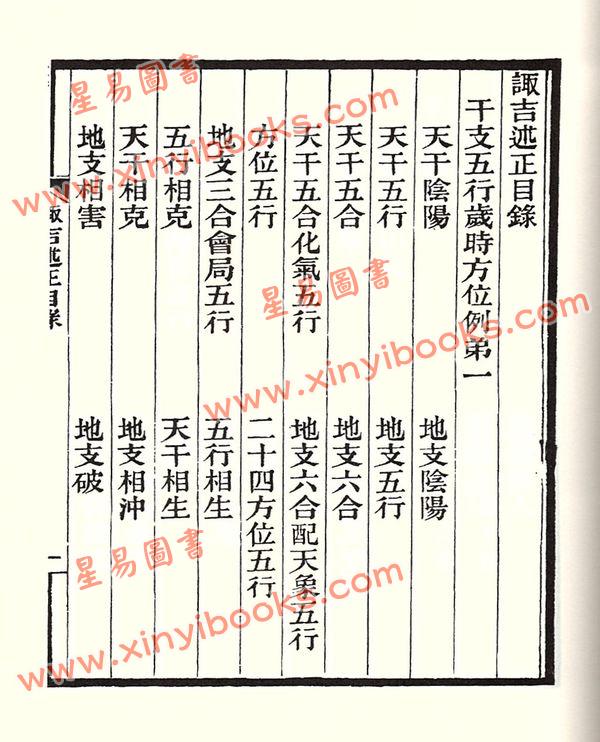 諏吉述正目錄
干支五行歲時方位例第一
天干陰陽 地支陰陽
天干五行 地支五行
天干五合 地支六合
天干五合化氣五行 地支六合配天象五行
方位五行 二十四方位五行
地支三合會局五行 五行相生
五行相克 天干相生
天干相克 地支相沖
地支相害 地支破
諏吉述正目錄
一
星易圖書
www.xinyibooks.com
星易圖書
www.xinyibooks.com
星易圖書
www.xinyibooks.com